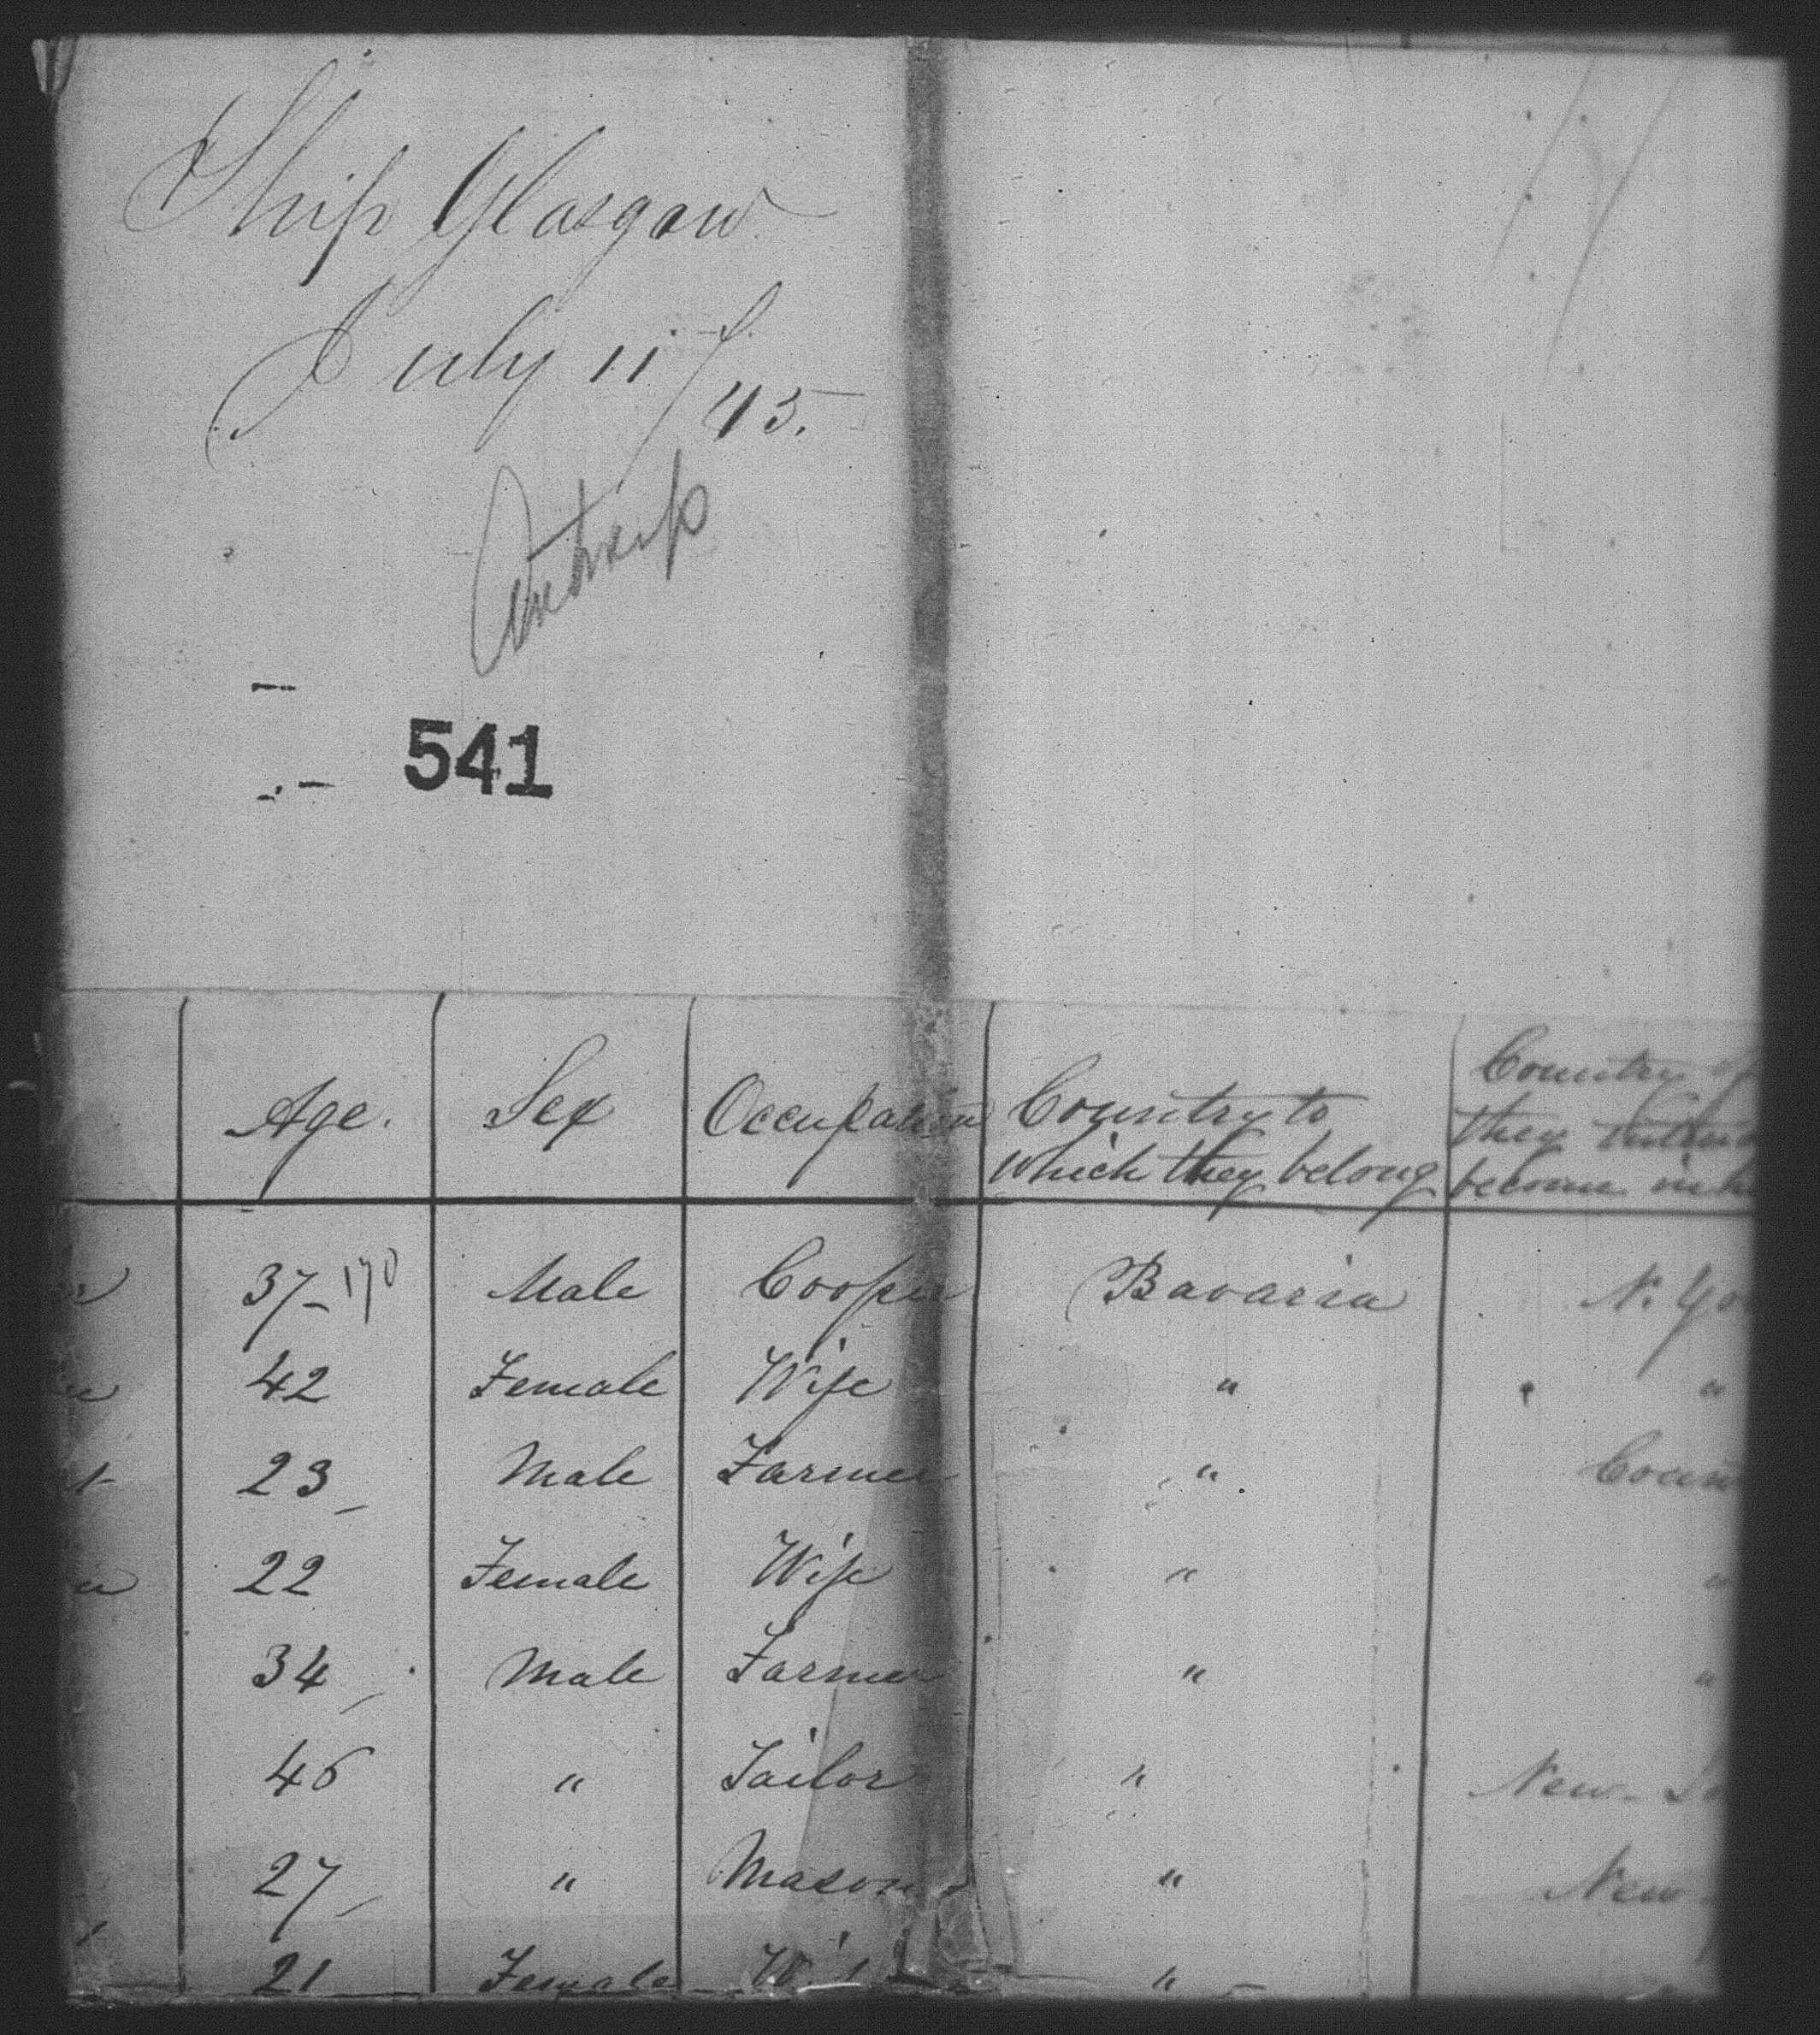 Ship Glasgow
July 11th
/45.
Antwerp
541
Age. Sex Occupation Country to which they belong Country of they intend become inh
37 - 170 Male Cooper Bavaria N. Yo
42 Female Wife " "
23 Male Farmer " Conn
22 Female Wife " "
34 Male Farmer " "
46 " Tailor " New-
27 " Mason " New-
21 Female "